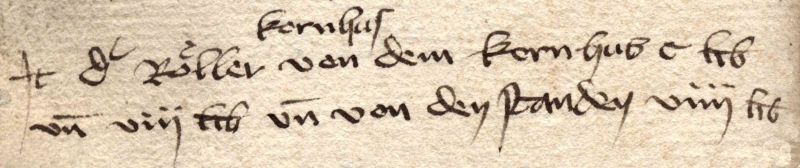 kornhuſ
It dͤ Röller von dem kornhus c lib
vn̄ viij lib vn̄ von den ſtanden viiij lib